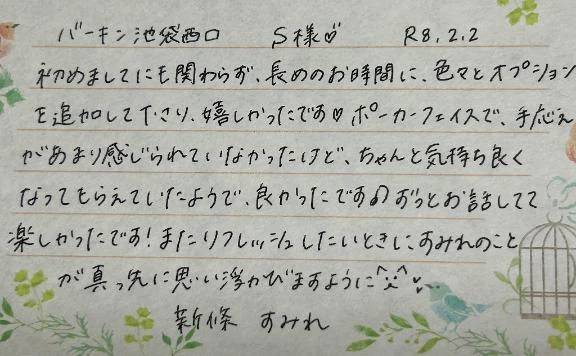 バーキン池袋西口 S様♡ R8.2.2
初めましてにも関わらず、長めのお時間に、色々とオプション
を追加して下さり、嬉しかったです♡ ポーカーフェイスで、手応え
があまり感じられていなかったけど、ちゃんと気持ち良く
なってもらえていたようで、良かったです♪ ずっとお話してて
楽しかったです!またリフレッシュしたいときに、すみれのこと
が真っ先に思い浮かびますように^^♡
新條 すみれ